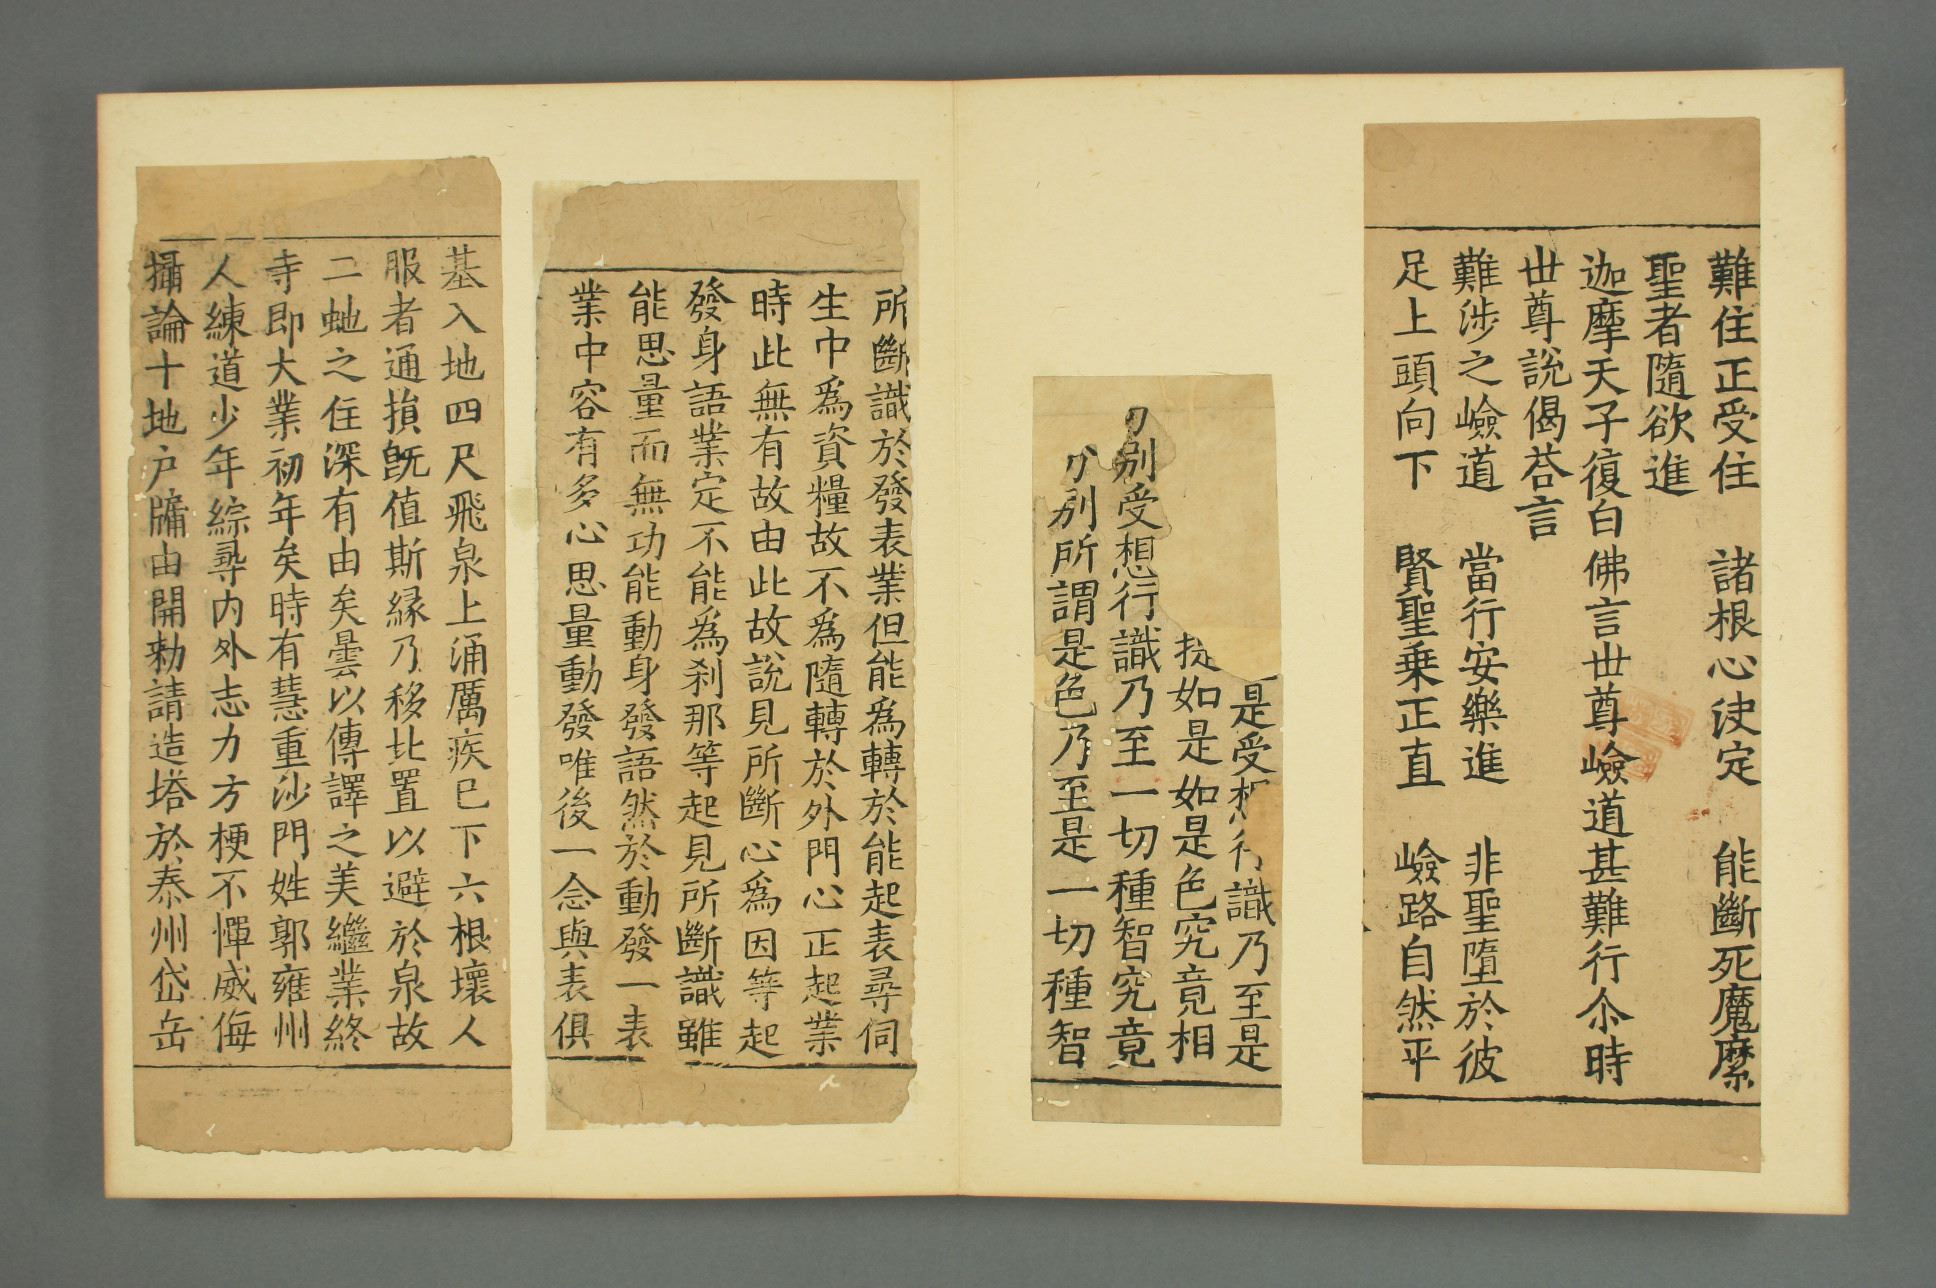 難住正受住　諸根心決定　能斷死魔縻
聖者隨欲進
迦摩天子復白佛言世尊嶮道甚難行尒時
世尊說偈荅言
難涉之嶮道　當行安樂進　非聖墮於彼
足上頭向下　賢聖乗正直　嶮路自然平
是受想行識乃至是
如是如是色究竟相
別受想行識乃至一切種智究竟
分別所謂是色乃至是一切種智
所斷識於發表業但能爲轉於能起表尋伺
生中爲資糧故不爲隨轉於外門心正起業
時此無有故由此故說見所斷心爲因等起
發身語業定不能爲剎那等起見所斷識雖
能思量而無功能動身發語然於動發一表
業中容有多心思量動發唯後一念與表俱
基入地四尺飛泉上涌厲疾已下六根壞人
服者通損旣值斯緣乃移北置以避於泉故
二虵之住深有由矣曇以傳譯之美繼業終
寺即大業初年矣時有慧重沙門姓郭雍州
人練道少年綜尋内外志力方梗不憚威侮
攝論十地戶牖由開勑請造塔於泰州岱岳